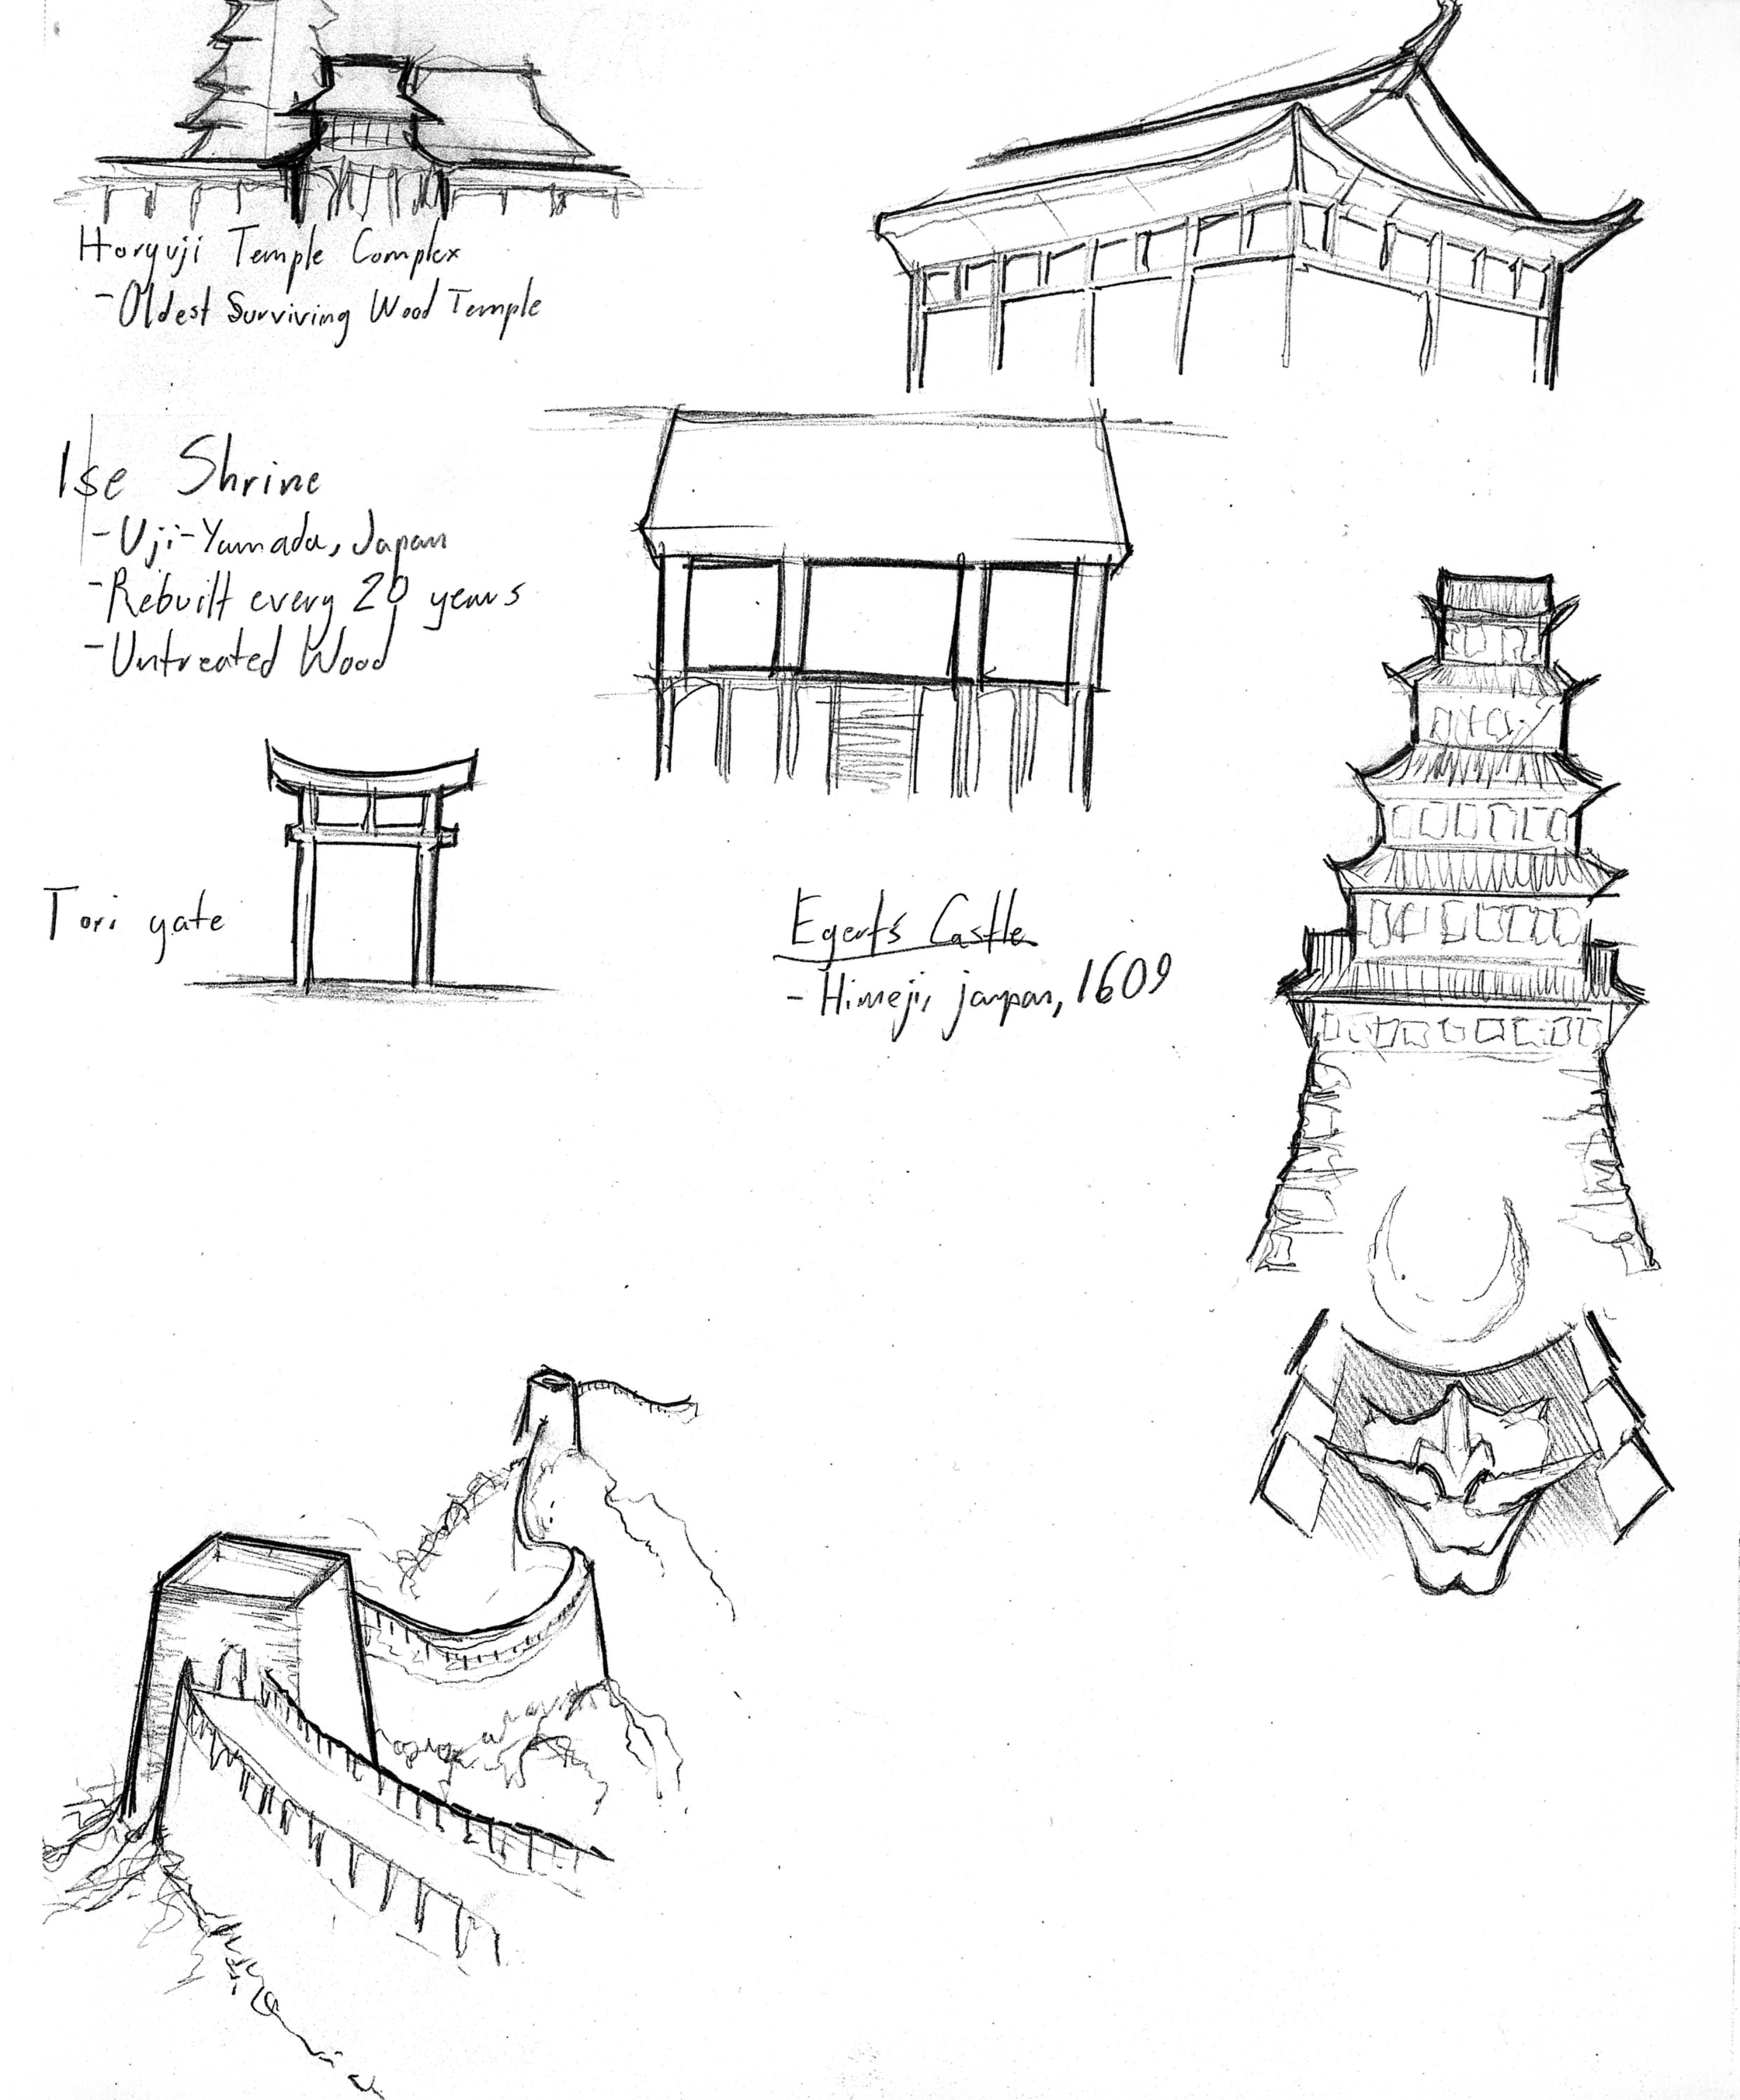 Horyuji Temple Complex
- Oldest Surviving Wood Temple
Ise Shrine
- Uji-Yamada, Japan
- Rebuilt every 20 years
- Untreated Wood
Tori gate
Egert's Castle
- Himeji, janpan, 1609